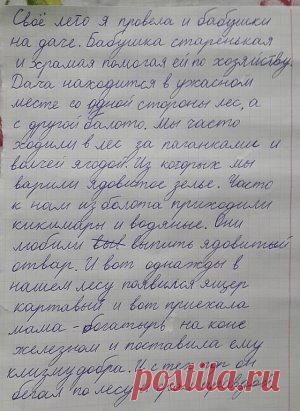 Своё лето я провела и бабушки
на даче. Бабушка старенькая
и храмая помогая ей по хозяйству.
Дача находится в ужасном
месте со одной стороны лес, а
с другой балото. Мы часто
ходили в лес за паганками и
волчей ягодой. Из которых мы
варили ядовитое зелье. Часто
к нам из болота приходили
кикимары и водяные. Они
любили выпить ядовитый
отвар. И вот однажды в
нашем лесу появился ящер
картавый и вот приехала
мама - богатырь на коне
железном и поставила ему
клизму добра. И с тех пор он
бегал по лесу и
posila.ru